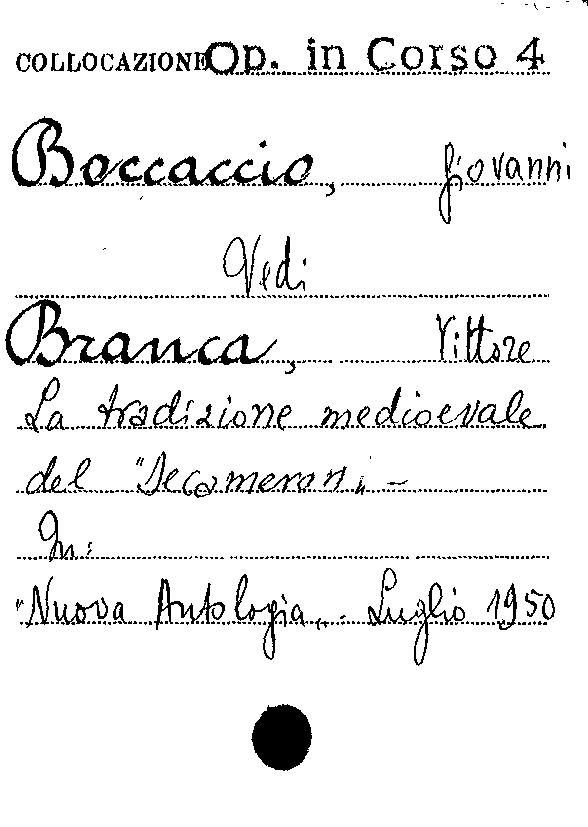 COLLOCAZIONE Op. in Corso 4
Boccaccio, Giovanni
Vedi
Branca, Vittore
La tradizione medioevale
del "Decameron" -
In:
"Nuova Antologia". Luglio 1950